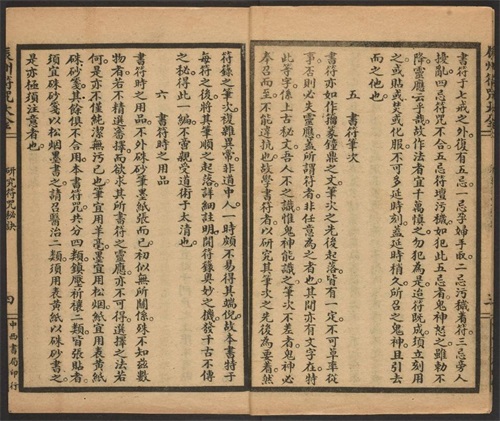 書符于七戒之外復有五忌一忌孕婦手二忌污穢看符三忌旁人
擾亂四忌符咒不合五忌符壇污穢如犯此五忌者鬼神怒之雖勅不
降靈應云乎哉故作法者宜千萬慎之勿犯為是迨符既成須立刻用
之或貼或焚或化服不可多延時刻蓋延時稍久所召之鬼神且引去
而之他也
五 書符筆次
書符亦如作篆鐘鼎之文筆次之先後起落皆有一定不可草率從
事否則必失靈應蓋所謂符者非任意為之者也其間亦有文字在特
此等字係上古秘文吾人不之識惟鬼神能識之筆次不差者鬼神必
奉召而至不能違抗也故學書符者以研究其筆次之先後為要着然
符籙之筆次複雜異常非道中人一時頗不易得其端倪故本書特于
每符之後將其筆順之起落詳細註明闡符籙奧妙之機發千古不傳
之秘得此一編不啻親受道術于太清也
六 書符時之用品
書符時之用品不外硃砂筆墨紙張而已初似無所關係殊不知茲數
物者若不精選審擇而欲求其所書符之靈應亦不可得選擇之法若
何是亦不僅純潔無污已也筆宜用羊毫墨宜用松烟紙宜用表黃紙
硃砂箋其餘俱不合用本書符咒共分四類鎮壓祈禳二類皆張貼者
須宜硃砂箋以松烟墨書之請召醫治二類須用表黃紙以硃砂書之
是亦極須注意者也
辰州符咒大全 研究符咒秘訣 四 中西書局印行